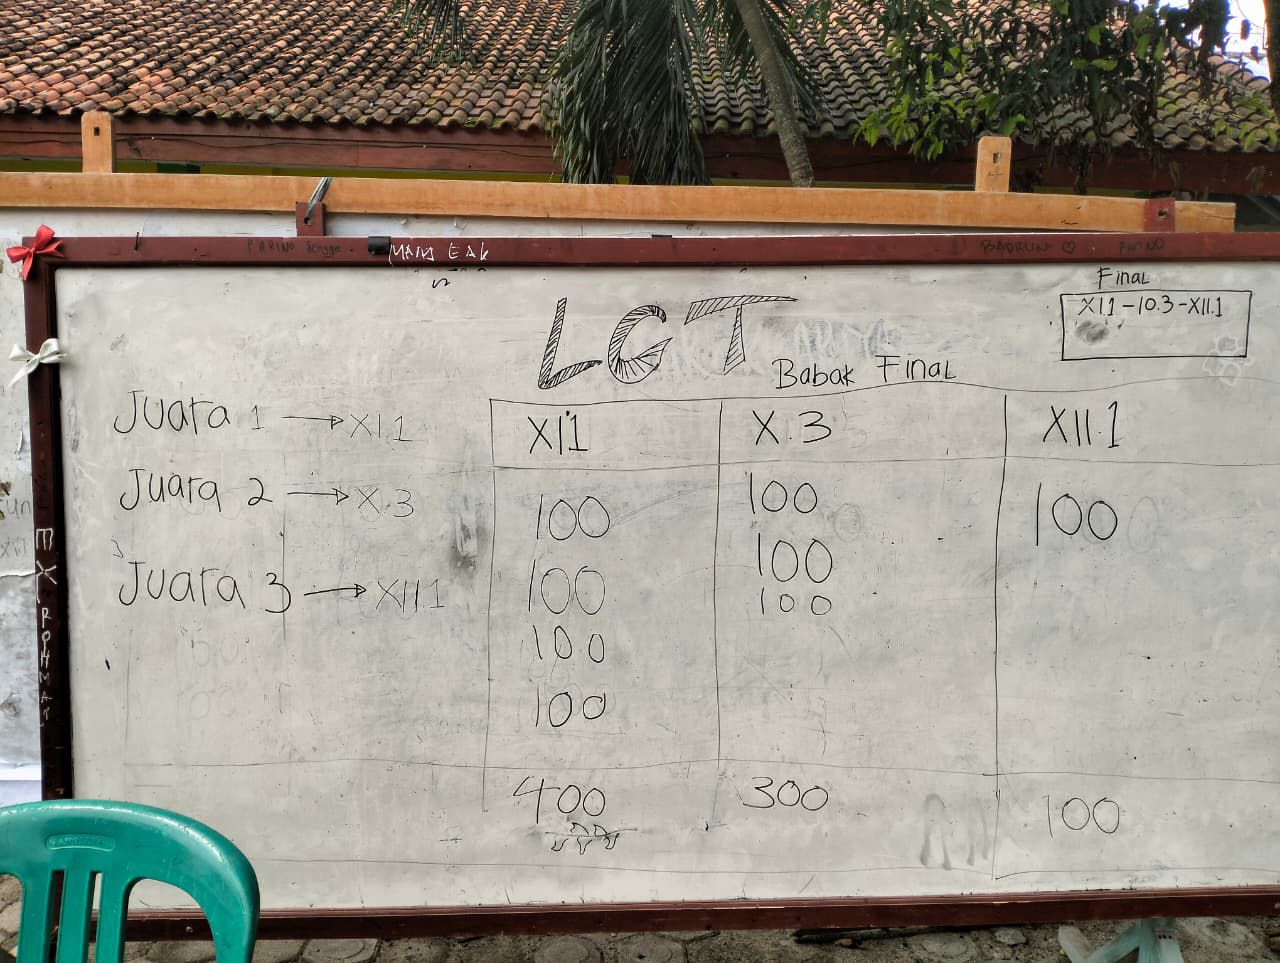 PARINO
MANA EAK
BADRUN
PARNO
Final
XI.1 - 10.3 - XII.1
LGT
Babak Final
Juara 1 → XI.1
Juara 2 → X.3
Juara 3 → XII.1
XI1 X.3 XII.1
100 100 100
100 100
100 100
100
400 300 100
ROHMAT